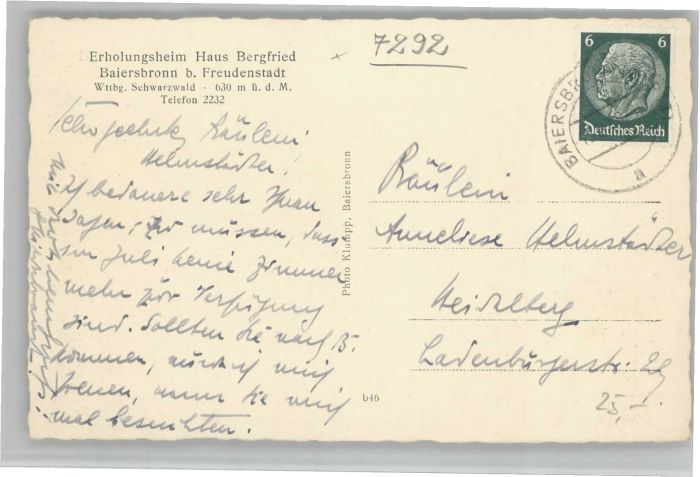 Erholungsheim Haus Bergfried
Baiersbronn b. Freudenstadt
Wttbg. Schwarzwald · 630 m ü. d. M.
Telefon 2232
7292
6 6
Deutsches Reich
BAIERSBR
a
Fräulein
Helmstädter!
Ich bedauere sehr Ihnen
sagen zu müssen, dass
im Juli keine Zimmer
mehr zur Verfügung
sind. Sollten Sie nach B.
kommen, würde ich mich
freuen, wenn Sie mich
mal besuchten.
Photo Klumpp, Baiersbronn
b46
Fräulein
Anneliese Helmstädter
Heidelberg
Ladenburgerstr. 29
25,-